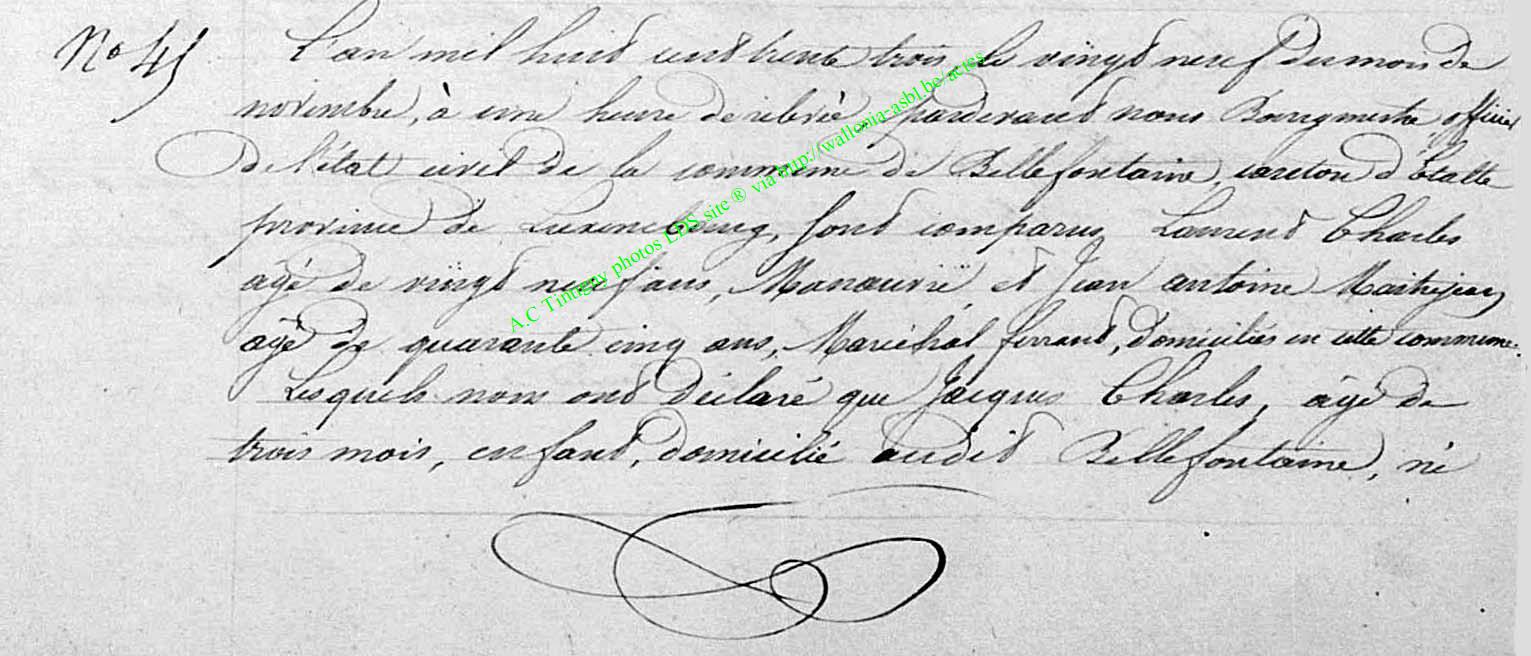 N° 45
L'an mil huit cent trente trois, le vingt neuf du mois de
novembre, à une heure de relevée, pardevant nous Bourgmestre officier
de l'état civil de la commune de Bellefontaine, canton d'Etalle
province de Luxembourg, sont comparus Laurent Charles
agé de vingt neuf ans, Manœuvre, et Jean antoine Maitrejean
agé de quarante cinq ans, Maréchal ferrant, domiciliés en cette commune.
Lesquels nous ont déclaré que Jacques Charles, âgé de
trois mois, enfant, domicilié audit Bellefontaine, né
A.C Tintigny photos LDS site ® via http://wallonia-asbl.be/actes